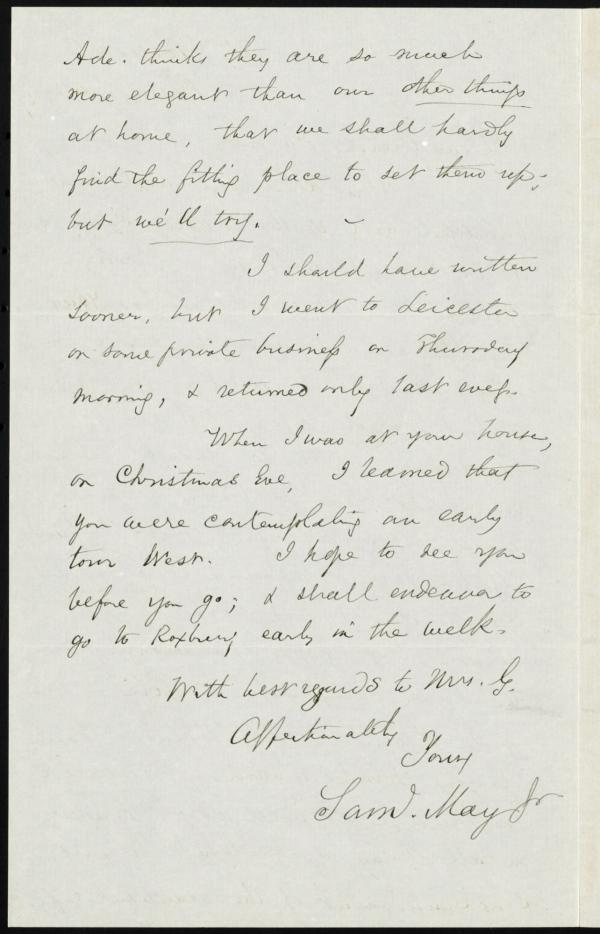 Ade. thinks they are so much
more elegant than our other things
at home, that we shall hardly
find the fitting place to set them up;
but we'll try. –
I should have written
sooner, but I went to Leicester
on some private business on Thursday
morning, & returned only last eveg.
When I was at your house,
on Christmas Eve, I learned that
you were contemplating an early
tour West. I hope to see you
before you go; & shall endeavor to
go to Roxbury early in the week.
With best regards to Mrs. G.
Affectionately
Yours
Saml. May Jr